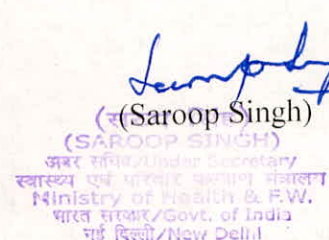 (Saroop Singh)
(SAROOP SINGH)
अवर सचिव/Under Secretary
स्वास्थ्य एवं परिवार कल्याण मंत्रालय
Ministry of Health & F.W.
भारत सरकार/Govt. of India
नई दिल्ली/New Delhi